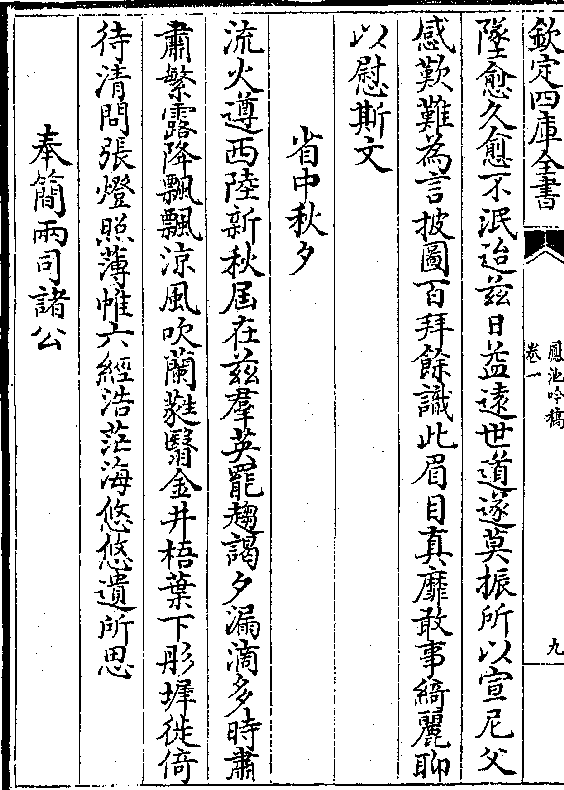 欽定四庫全書
鳳池吟稿
卷一
九
墜愈久愈不泯迨兹日益遠世道遂莫振所以宣尼父
感歎難為言披圖百拜餘識此眉目真靡敢事綺麗聊
以慰斯文
省中秋夕
流火遵西陸新秋届在兹羣英罷趨謁夕漏滴多時肅
肅繁露降飄飄涼風吹蘭蕤翳金井梧葉下彤墀徙倚
待清問張燈照薄帷六經浩茫海悠悠遺所思
奉簡兩司諸公